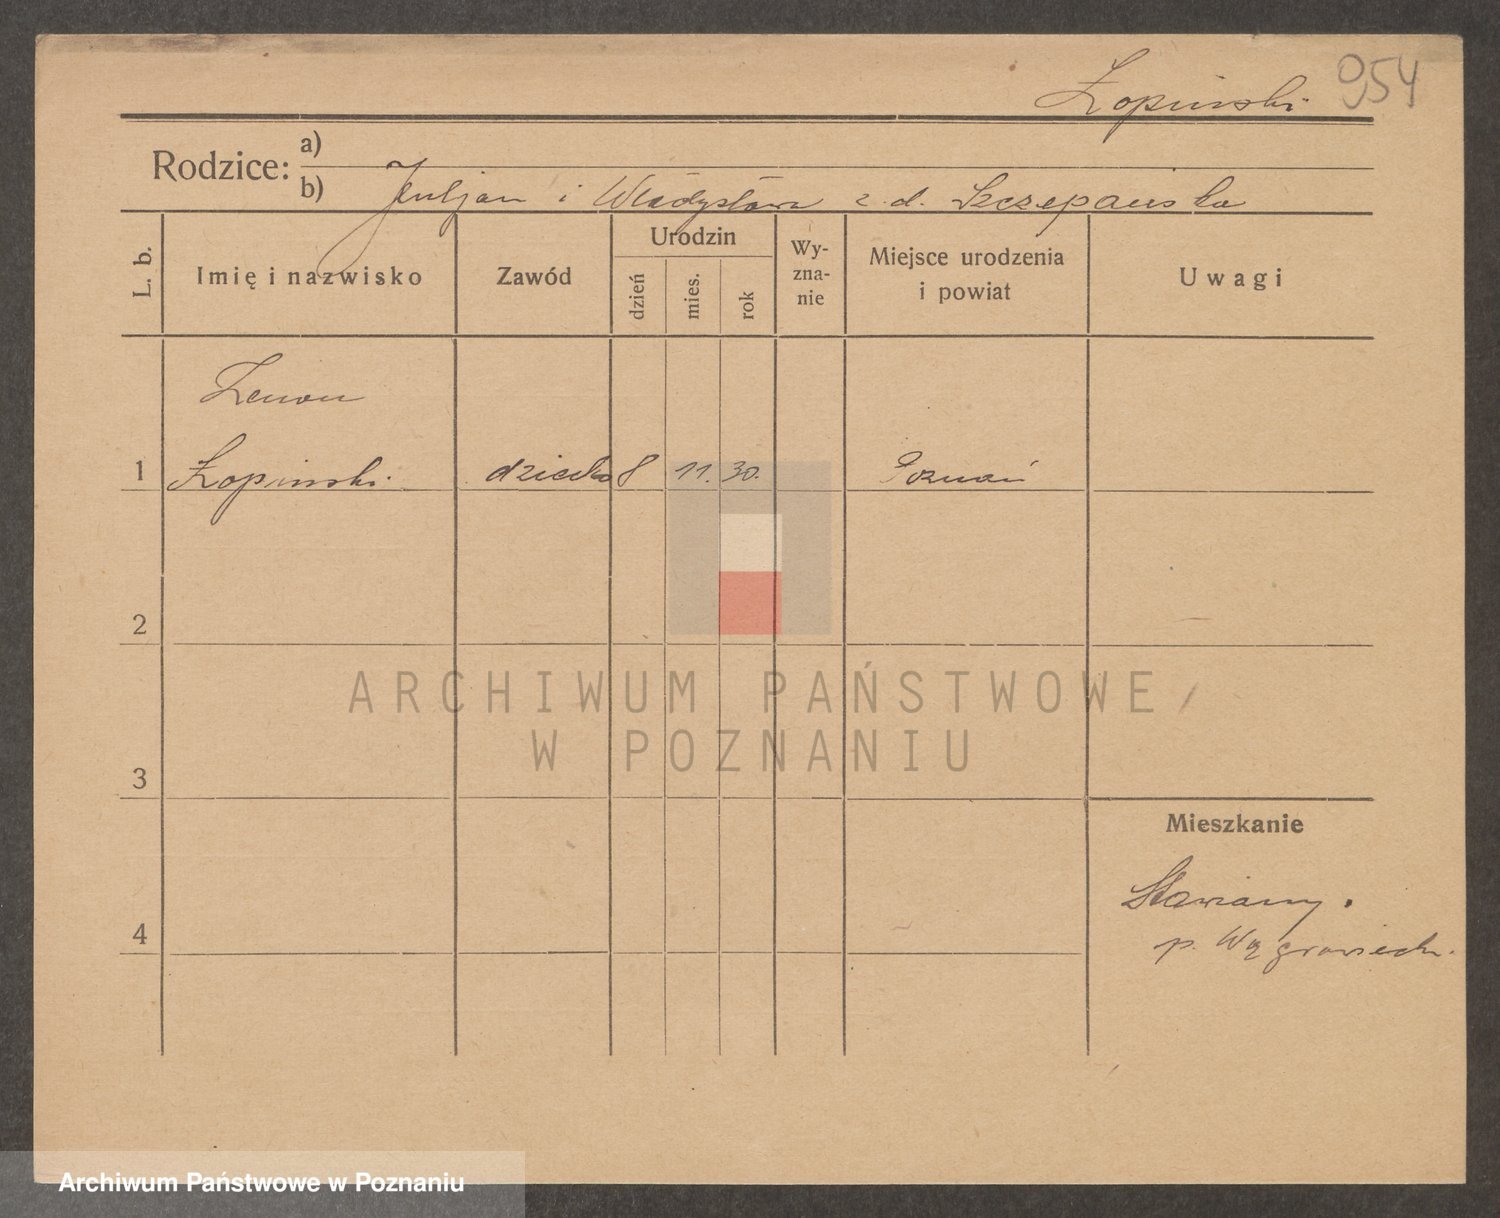 Łopiński 954
Rodzice: a)
b) Juljan i Władysława z. d. Szczepańska
L. b.
Imię i nazwisko
Zawód
Urodzin
dzień
mies.
rok
Wy-
zna-
nie
Miejsce urodzenia
i powiat
Uwagi
Zenon
1 Łopiński. dziecko 8 11. 30. Poznań
2
ARCHIWUM PAŃSTWOWE
W POZNANIU
3
Mieszkanie
Stawiany.
4
p. Wągrowiecki.
Archiwum Państwowe w Poznaniu